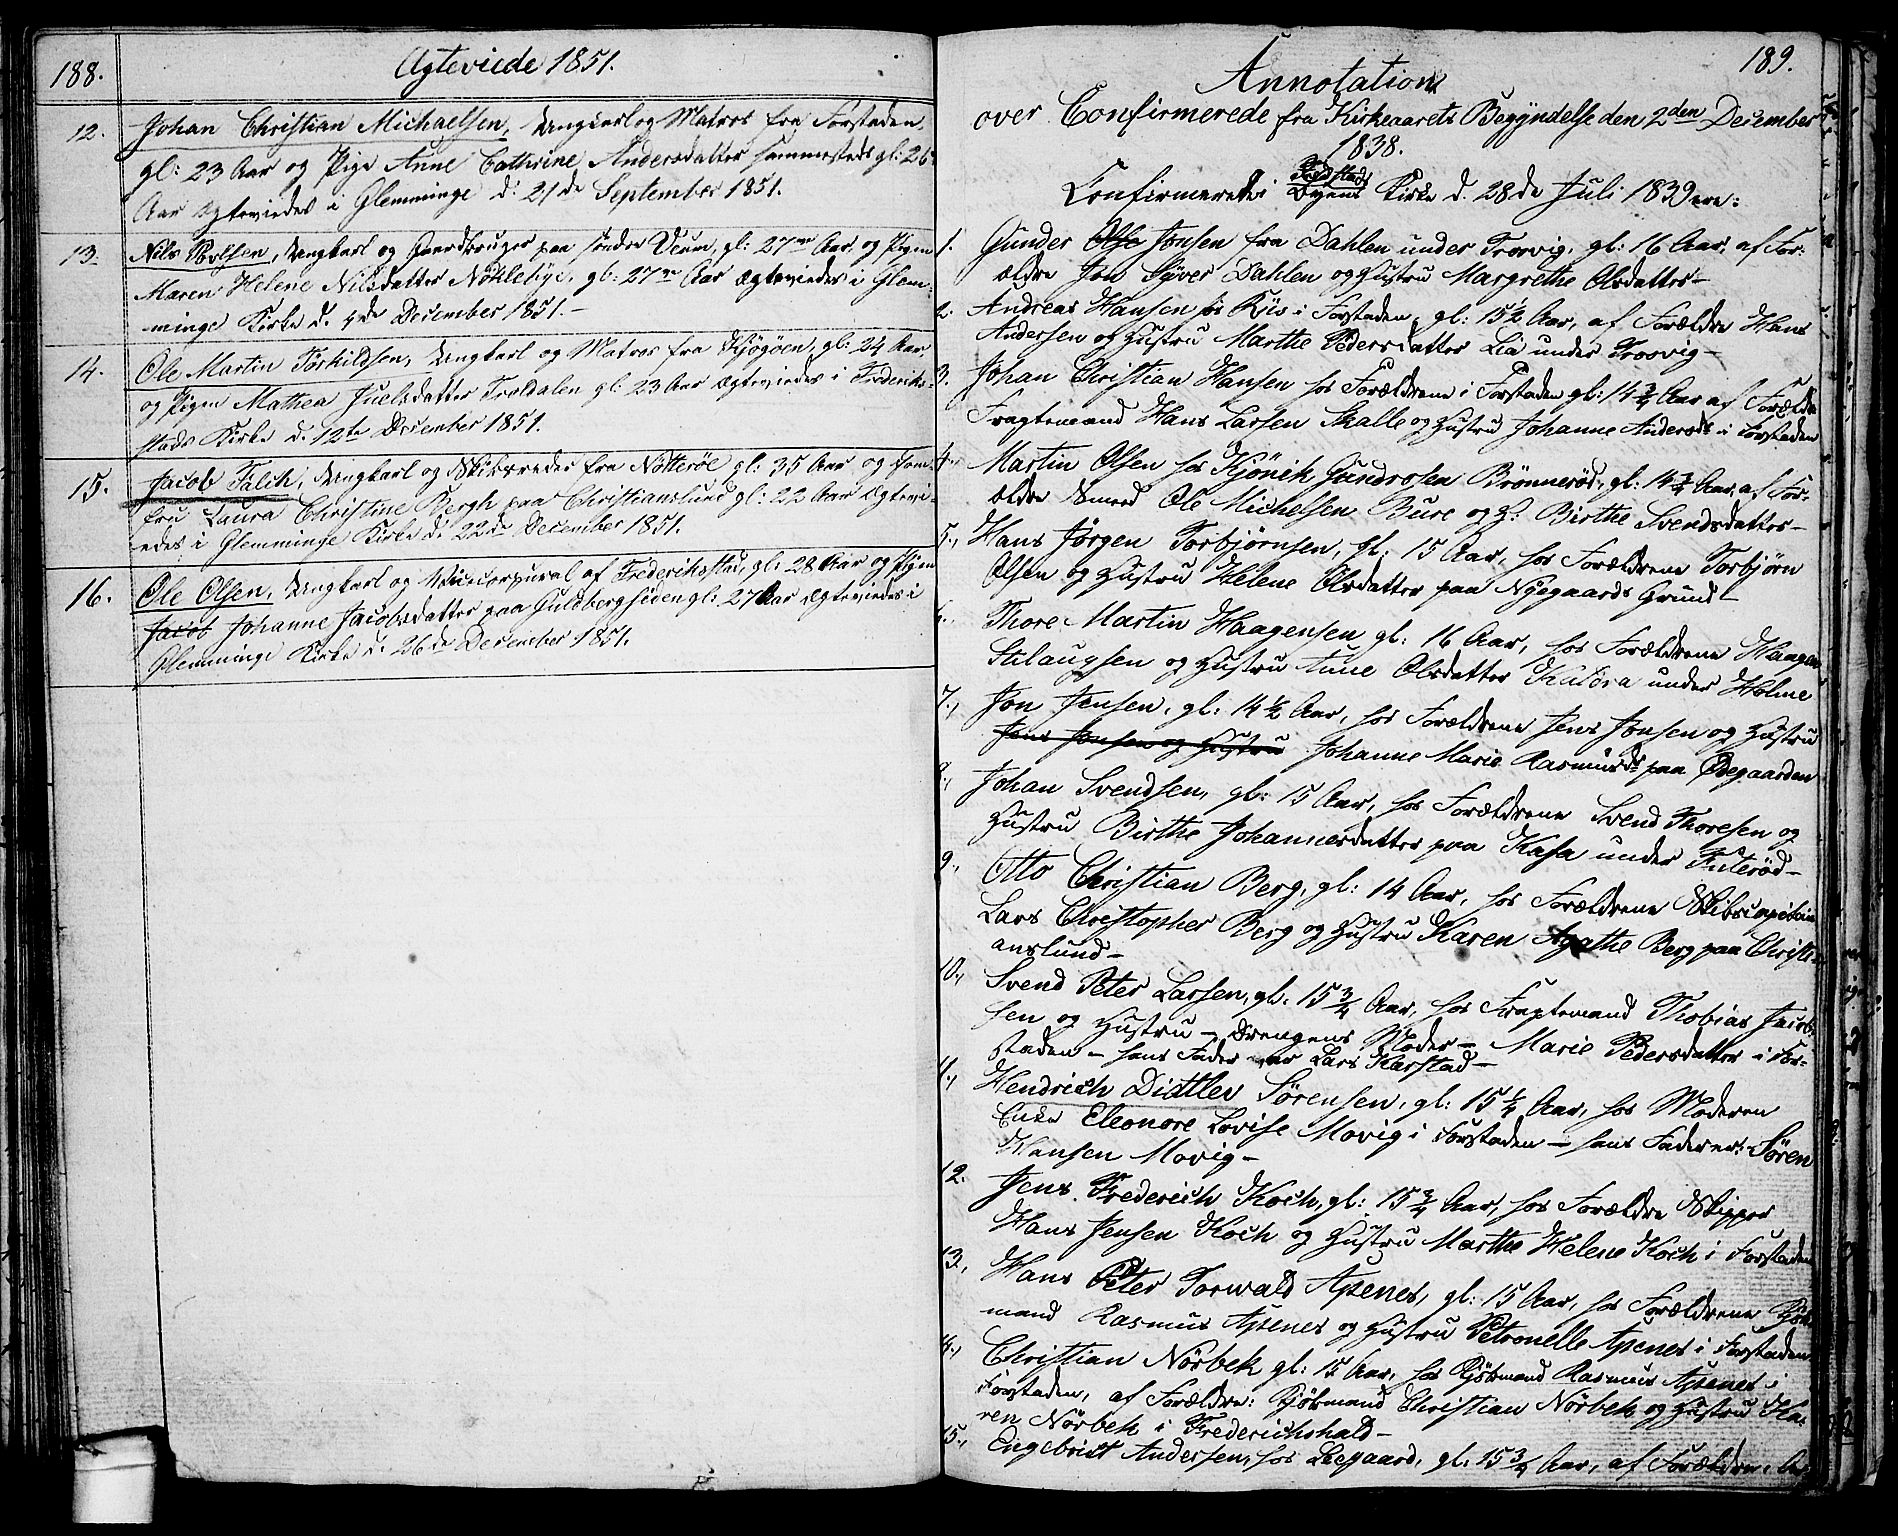 188.
Ægteviede 1851.
12. Johan Christian Michaelsen, Ungkarl og Matros fra Forstaden,
gl: 23 Aar og Pige Anne Cathrine Andersdatter sammesteds gl: 26
Aar Ægteviedes i Glemminge d: 21de September 1851.
13. Nils Nilsen, Ungkarl og Gaardbruger paa søndre Veum, gl: 27 Aar, og Pigen
Maren Helene Nilsdatter Nøkleby, gl: 27 Aar Ægteviedes i Glem-
minge Kirke d. 4de December 1851.-
14. Ole Martin Torkildsen, Ungkarl og Matros fra Kjøgøen, gl: 24 Aar
og Pigen Mathea Juelsdatter Troldalen gl: 23 Aar Ægteviedes i Frederik-
stads Kirke d. 12te December 1851.
15. Jacob Falch, Ungkarl og Skibsreder fra Nøtterøe gl: 35 Aar og Jom-
fru Laura Christine Bergh paa Christianslund gl: 22 Aar Ægtevi-
edes i Glemminge Kirke d: 22de December 1851.
16. Ole Olsen, Ungkarl og Vicecorpural af Frederikstad, gl: 28 Aar og Pigen
Jacob Johanne Jacobsdatter paa Guldbergsiden gl: 27 Aar Ægteviedes i
Glemminge Kirke d. 26de December 1851.
189.
Annotation
over Confirmerede fra Kirkeaarets Begyndelse den 2den December
1838.
Confirmerede i Byens Kirke d. 28de Juli 1839 ere:
1. Gunder Olse Jonsen fra Dahlen under Trosvig, gl: 16 Aar, af For-
ældre Jon Syver Dahlen og Hustru Margrethe Olsdatter-
2. Andreas Hansen hos Riis i Forstaden, gl: 15½ Aar, af Forældre Hans
Andersen og Hustru Marthe Pedersdatter Lia under Trosvig-
3. Johan Christian Hansen hos Forældrene i Forstaden gl: 14¾ Aar af Forældre
Fragtemand Hans Larsen Skalle og Hustru Johanne Andersd: i Forstaden
4., Martin Olsen hos Kjønik Gundrosen Brønnerød, gl: 14¾ Aar, af For-
ældre Smed Ole Michelsen Bure og H: Birthe Svendsdatter-
5., Hans Jørgen Torbjørnsen, gl: 15 Aar, hos Forældrene Torbjørn
Olsen og Hustru Helene Olsdatter paa Nygaards Grund-
Thore Martin Haagensen gl: 16 Aar, hos Forældrene Haagen
og Hustru Anne Olsdatter under Holme
7., Jon Jensen, gl: 14½ Aar, hos Forældrene Jens Jonsen og Hustru
Jens Jonsen og Hustru Johanne Marie Rasmusd: paa Ødegaarden
8., Johan Svendsen, gl: 15 Aar, hos Forældrene Svend Thoresen og
Hustru Birthe Johannesdatter paa Kasa under
9., Otto Christian Berg, gl: 14 Aar, hos Forældrene Skibscapitain
Lars Christopher Berg og Hustru Karen Agathe Berg paa Christi-
anslund-
10., Svend Peter Larsen, gl: 15¾ Aar, hos Fragtemand Thobias Jacob-
sen og Hustru - Drengens Moder - Marie Pedersdatter i For-
staden - hans Fader var Lars Karstad-
11., Hendrich Didtlev Sørensen, gl: 15¼ Aar, hos Moderen
Enke Eleonore Lovise Movig i Forstaden - hans Fader er: Søren
Hansen Movig-
12. Jens Frederich Koch, gl: 15¾ Aar, hos Forældre Skipper
Hans Jensen Koch og Hustru Marthe Helene Koch i Forstaden
13., Hans Peter Torwald Apenes, gl: 15 Aar, hos Forældrene Kjøb-
mand Rasmus Apenes og Hustru Petronelle Apenes i Forstaden
14., Christian Nørbek gl: 15 Aar, hos Kjøbmand Rasmus Apenes i
Forstaden, af Forældre: Kjøbmand Christian Nørbek og Hustru Ka-
ren Nørbek i Frederichshald-
15., Engebrict Andersen, hos Leegaard, gl: 15¾ Aar, af Forældre: An